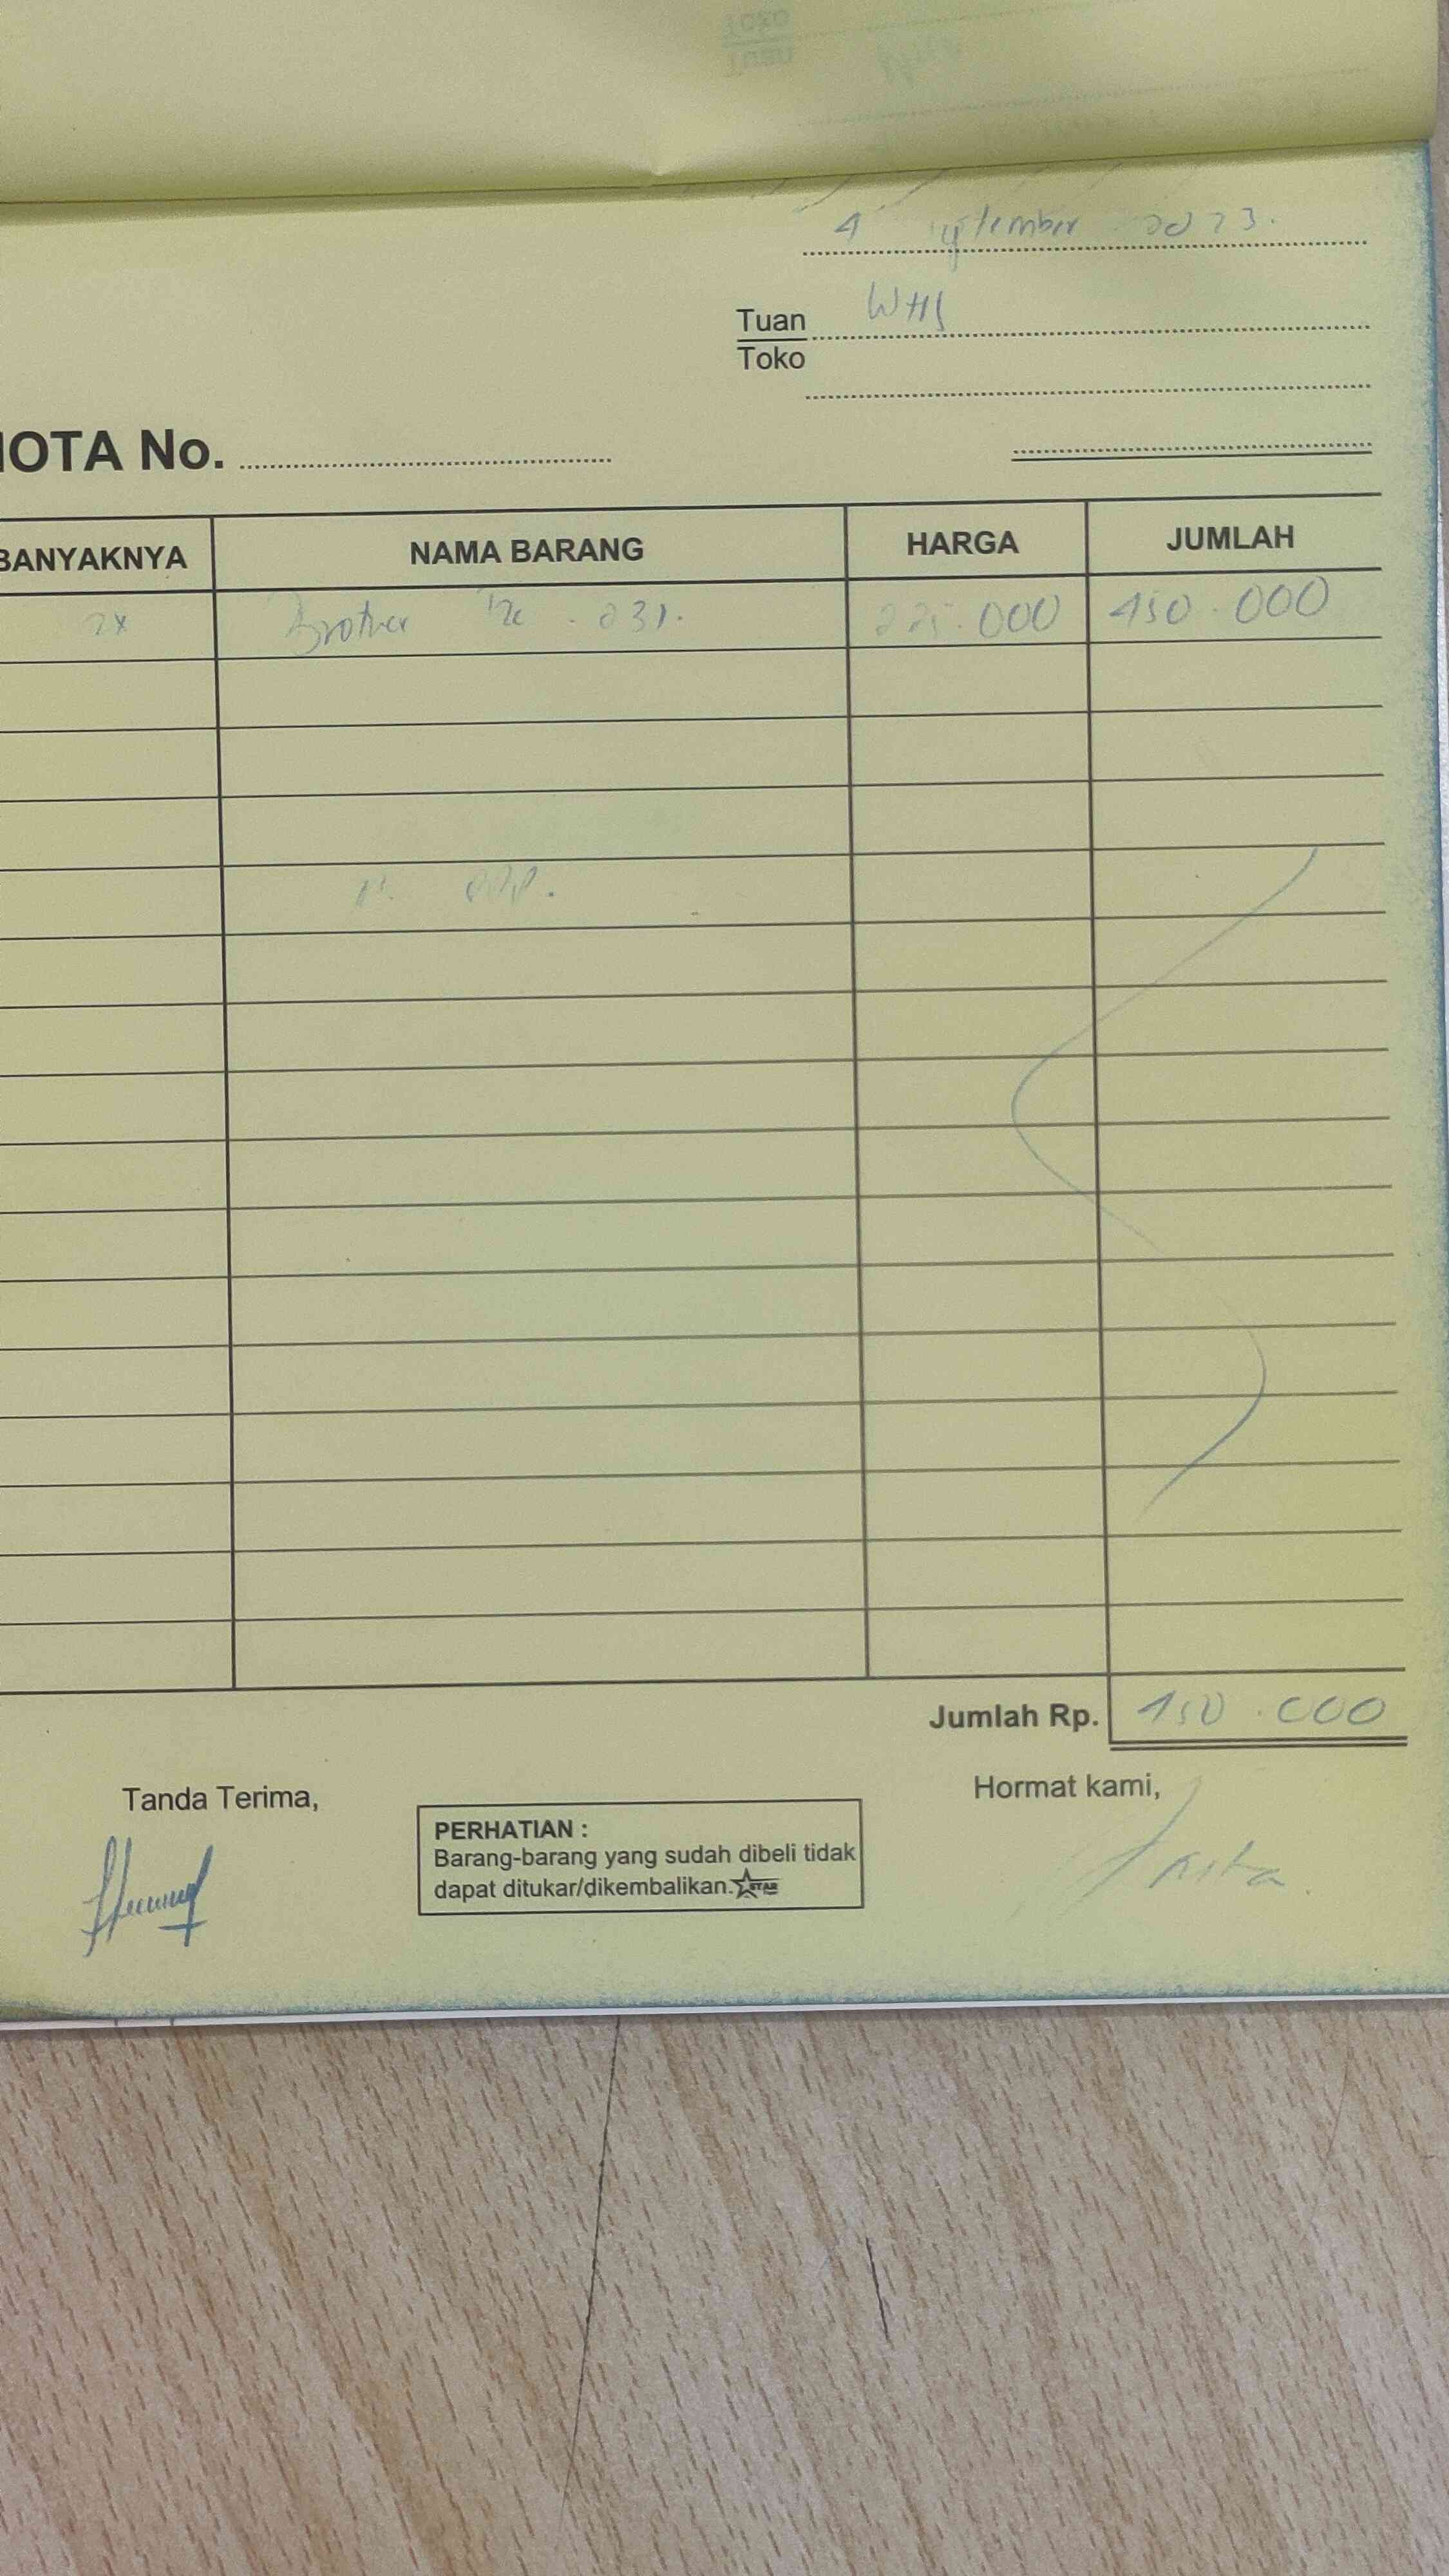 4 September 2023.
Tuan WHS
Toko
NOTA No.
BANYAKNYA NAMA BARANG HARGA JUMLAH
2x Brother Tze - 231. 225.000 450.000
Jumlah Rp. 450.000
Tanda Terima,
Hormat kami,
PERHATIAN :
Barang-barang yang sudah dibeli tidak
dapat ditukar/dikembalikan. STAR